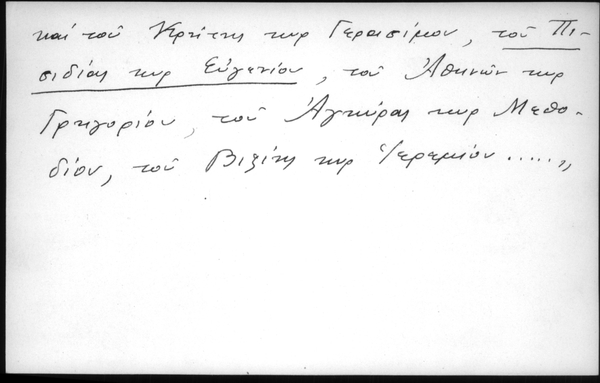 καί τοῦ Κρήτης κυρ Γερασίμου, τοῦ Πι-
σιδίας κυρ Εὐγενίου, τοῦ Ἀθηνῶν κυρ
Γρηγορίου, τοῦ Ἀγκύρας κυρ Μεθο-
δίου, τοῦ Βιζύης κυρ Ἱερεμίου .....,,